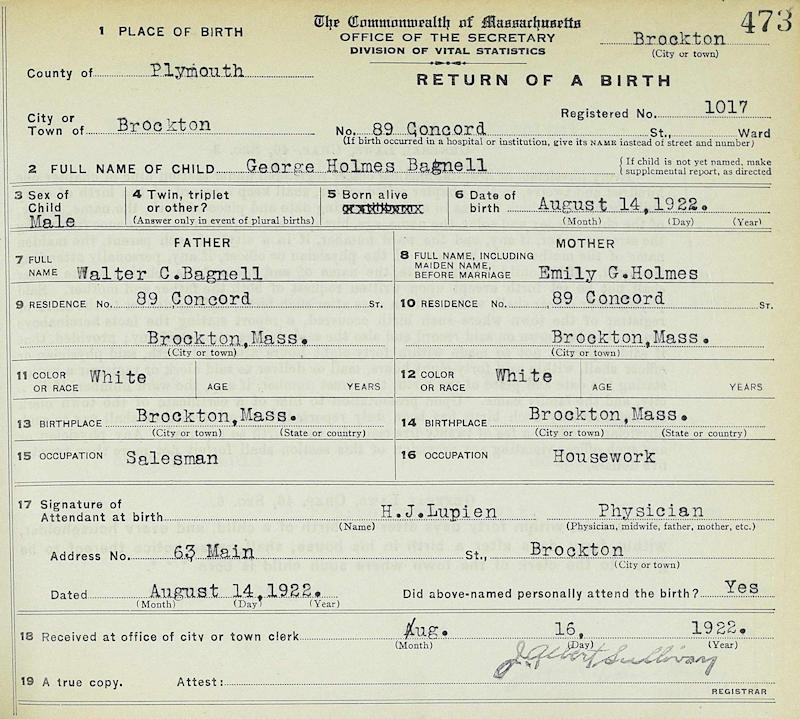 473
The Commonwealth of Massachusetts
1 PLACE OF BIRTH
OFFICE OF THE SECRETARY
DIVISION OF VITAL STATISTICS
Brockton
(City or town)
County of Plymouth
RETURN OF A BIRTH
Registered No. 1017
City or
Town of Brockton
No. 89 Concord St., Ward
(If birth occurred in a hospital or institution, give its NAME instead of street and number)
2 FULL NAME OF CHILD George Holmes Bagnell
{ If child is not yet named, make
{ supplemental report, as directed
3 Sex of
Child
Male
4 Twin, triplet
or other?
(Answer only in event of plural births)
5 Born alive
6 Date of
birth August 14,1922.
(Month) (Day) (Year)
FATHER
7 FULL
NAME Walter C.Bagnell
MOTHER
8 FULL NAME, INCLUDING
MAIDEN NAME,
BEFORE MARRIAGE Emily G.Holmes
9 RESIDENCE No. 89 Concord ST.
Brockton,Mass.
(City or town)
10 RESIDENCE No. 89 Concord ST.
Brockton,Mass.
(City or town)
11 COLOR
OR RACE White AGE YEARS
12 COLOR
OR RACE White AGE YEARS
13 BIRTHPLACE Brockton,Mass.
(City or town) (State or country)
14 BIRTHPLACE Brockton,Mass.
(City or town) (State or country)
15 OCCUPATION Salesman
16 OCCUPATION Housework
17 Signature of
Attendant at birth H.J.Lupien Physician
(Name) (Physician, midwife, father, mother, etc.)
Address No. 63 Main St., Brockton
(City or town)
Dated August 14,1922.
(Month) (Day) (Year)
Did above-named personally attend the birth? Yes
18 Received at office of city or town clerk Aug. 16, 1922.
(Month) (Day) (Year)
J. Albert Sullivan
19 A true copy. Attest:
REGISTRAR